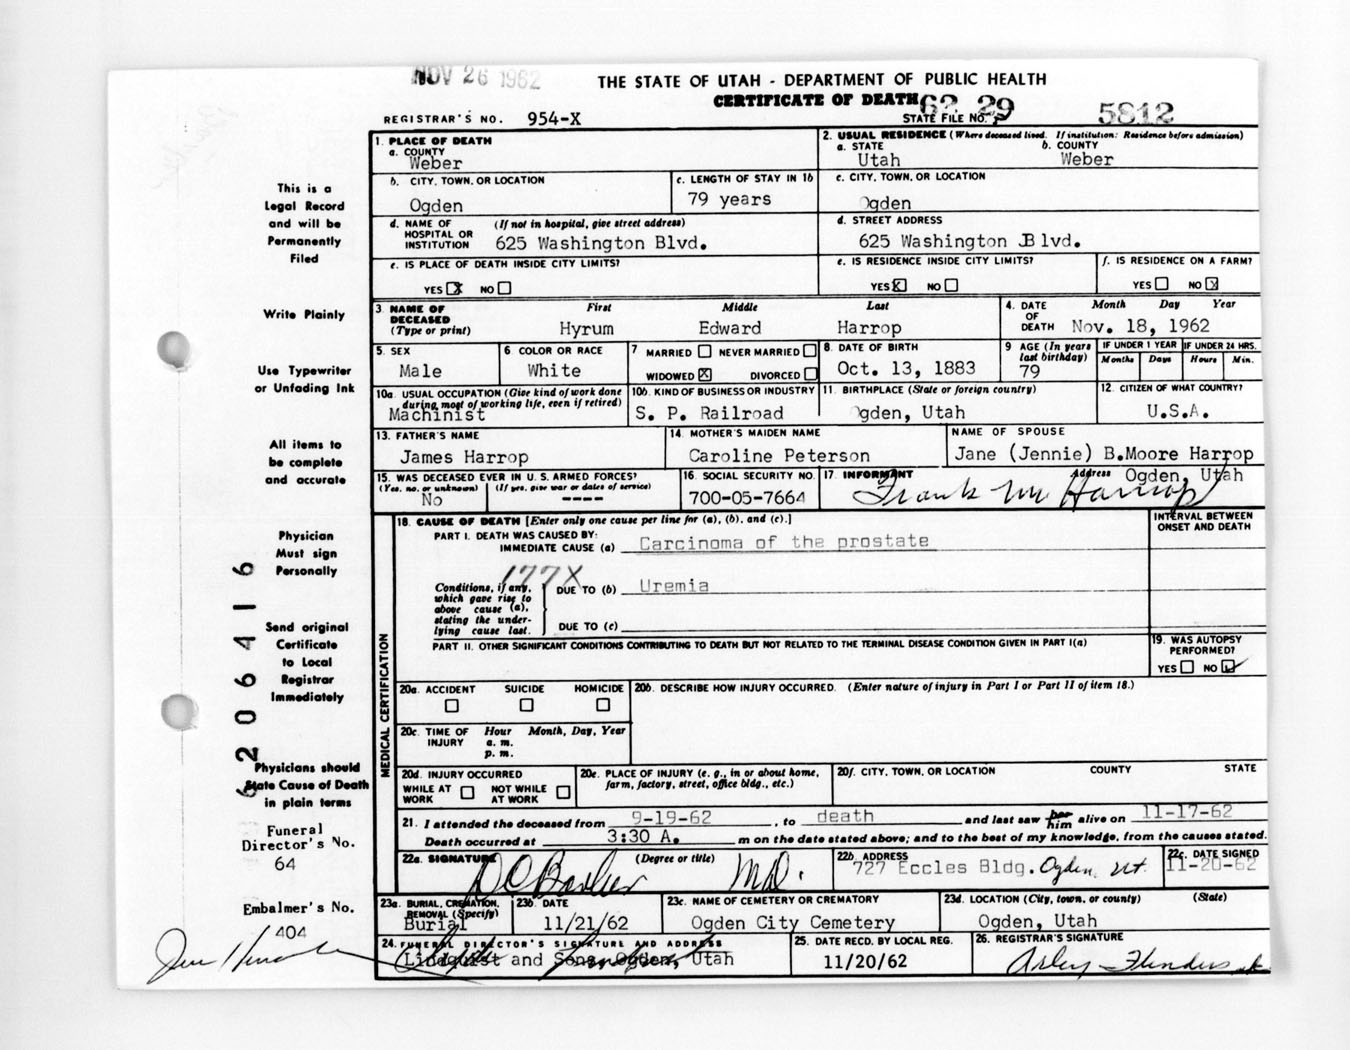 NOV 26 1962
THE STATE OF UTAH - DEPARTMENT OF PUBLIC HEALTH
CERTIFICATE OF DEATH
REGISTRAR'S NO. 954-X
STATE FILE NO. 62 29 5812
1. PLACE OF DEATH
a. COUNTY
Weber
2. USUAL RESIDENCE (Where deceased lived. If institution: Residence before admission)
a. STATE b. COUNTY
Utah Weber
b. CITY, TOWN, OR LOCATION
Ogden
c. LENGTH OF STAY IN 1b
79 years
c. CITY, TOWN, OR LOCATION
Ogden
d. NAME OF HOSPITAL OR INSTITUTION (If not in hospital, give street address)
625 Washington Blvd.
d. STREET ADDRESS
625 Washington Blvd.
e. IS PLACE OF DEATH INSIDE CITY LIMITS?
YES X NO
e. IS RESIDENCE INSIDE CITY LIMITS?
YES X NO
f. IS RESIDENCE ON A FARM?
YES NO X
3. NAME OF DECEASED (Type or print)
First Middle Last
Hyrum Edward Harrop
4. DATE OF DEATH
Month Day Year
Nov. 18, 1962
5. SEX
Male
6. COLOR OR RACE
White
7 MARRIED NEVER MARRIED
WIDOWED X DIVORCED
8. DATE OF BIRTH
Oct. 13, 1883
9 AGE (In years last birthday)
79
IF UNDER 1 YEAR
Months Days
IF UNDER 24 HRS.
Hours Min.
10a. USUAL OCCUPATION (Give kind of work done during most of working life, even if retired)
Machinist
10b. KIND OF BUSINESS OR INDUSTRY
S. P. Railroad
11. BIRTHPLACE (State or foreign country)
Ogden, Utah
12. CITIZEN OF WHAT COUNTRY?
U.S.A.
13. FATHER'S NAME
James Harrop
14. MOTHER'S MAIDEN NAME
Caroline Peterson
NAME OF SPOUSE
Jane (Jennie) B.Moore Harrop
15. WAS DECEASED EVER IN U. S. ARMED FORCES?
(Yes, no, or unknown) (If yes, give war or dates of service)
No ----
16. SOCIAL SECURITY NO.
700-05-7664
17. INFORMANT Address
Ogden, Utah
Frank M Harrop
MEDICAL CERTIFICATION
18. CAUSE OF DEATH [Enter only one cause per line for (a), (b), and (c).]
PART I. DEATH WAS CAUSED BY:
IMMEDIATE CAUSE (a) Carcinoma of the prostate
INTERVAL BETWEEN ONSET AND DEATH
177X
Conditions, if any,
which gave rise to
above cause (a),
stating the under-
lying cause last.
DUE TO (b) Uremia
DUE TO (c)
PART II. OTHER SIGNIFICANT CONDITIONS CONTRIBUTING TO DEATH BUT NOT RELATED TO THE TERMINAL DISEASE CONDITION GIVEN IN PART I(a)
19. WAS AUTOPSY PERFORMED?
YES NO
20a. ACCIDENT SUICIDE HOMICIDE
20b. DESCRIBE HOW INJURY OCCURRED. (Enter nature of injury in Part I or Part II of item 18.)
20c. TIME OF INJURY
Hour Month, Day, Year
a. m.
p. m.
20d. INJURY OCCURRED
WHILE AT WORK NOT WHILE AT WORK
20e. PLACE OF INJURY (e. g., in or about home, farm, factory, street, office bldg., etc.)
20f. CITY, TOWN, OR LOCATION COUNTY STATE
21. I attended the deceased from 9-19-62, to death and last saw her him alive on 11-17-62
Death occurred at 3:30 A. m on the date stated above; and to the best of my knowledge, from the causes stated.
22a. SIGNATURE (Degree or title)
D C Barker MD.
22b. ADDRESS
727 Eccles Bldg. Ogden, Ut.
22c. DATE SIGNED
11-20-62
23a. BURIAL, CREMATION, REMOVAL (Specify)
Burial
23b. DATE
11/21/62
23c. NAME OF CEMETERY OR CREMATORY
Ogden City Cemetery
23d. LOCATION (City, town, or county) (State)
Ogden, Utah
24. FUNERAL DIRECTOR'S SIGNATURE AND ADDRESS
Lindquist and Sons, Ogden, Utah
25. DATE RECD. BY LOCAL REG.
11/20/62
26. REGISTRAR'S SIGNATURE
This is a
Legal Record
and will be
Permanently
Filed
Write Plainly
Use Typewriter
or Unfading Ink
All items to
be complete
and accurate
Physician
Must sign
Personally
Send original
Certificate
to Local
Registrar
Immediately
Physicians should
State Cause of Death
in plain terms
Funeral
Director's No.
64
Embalmer's No.
404
6206416